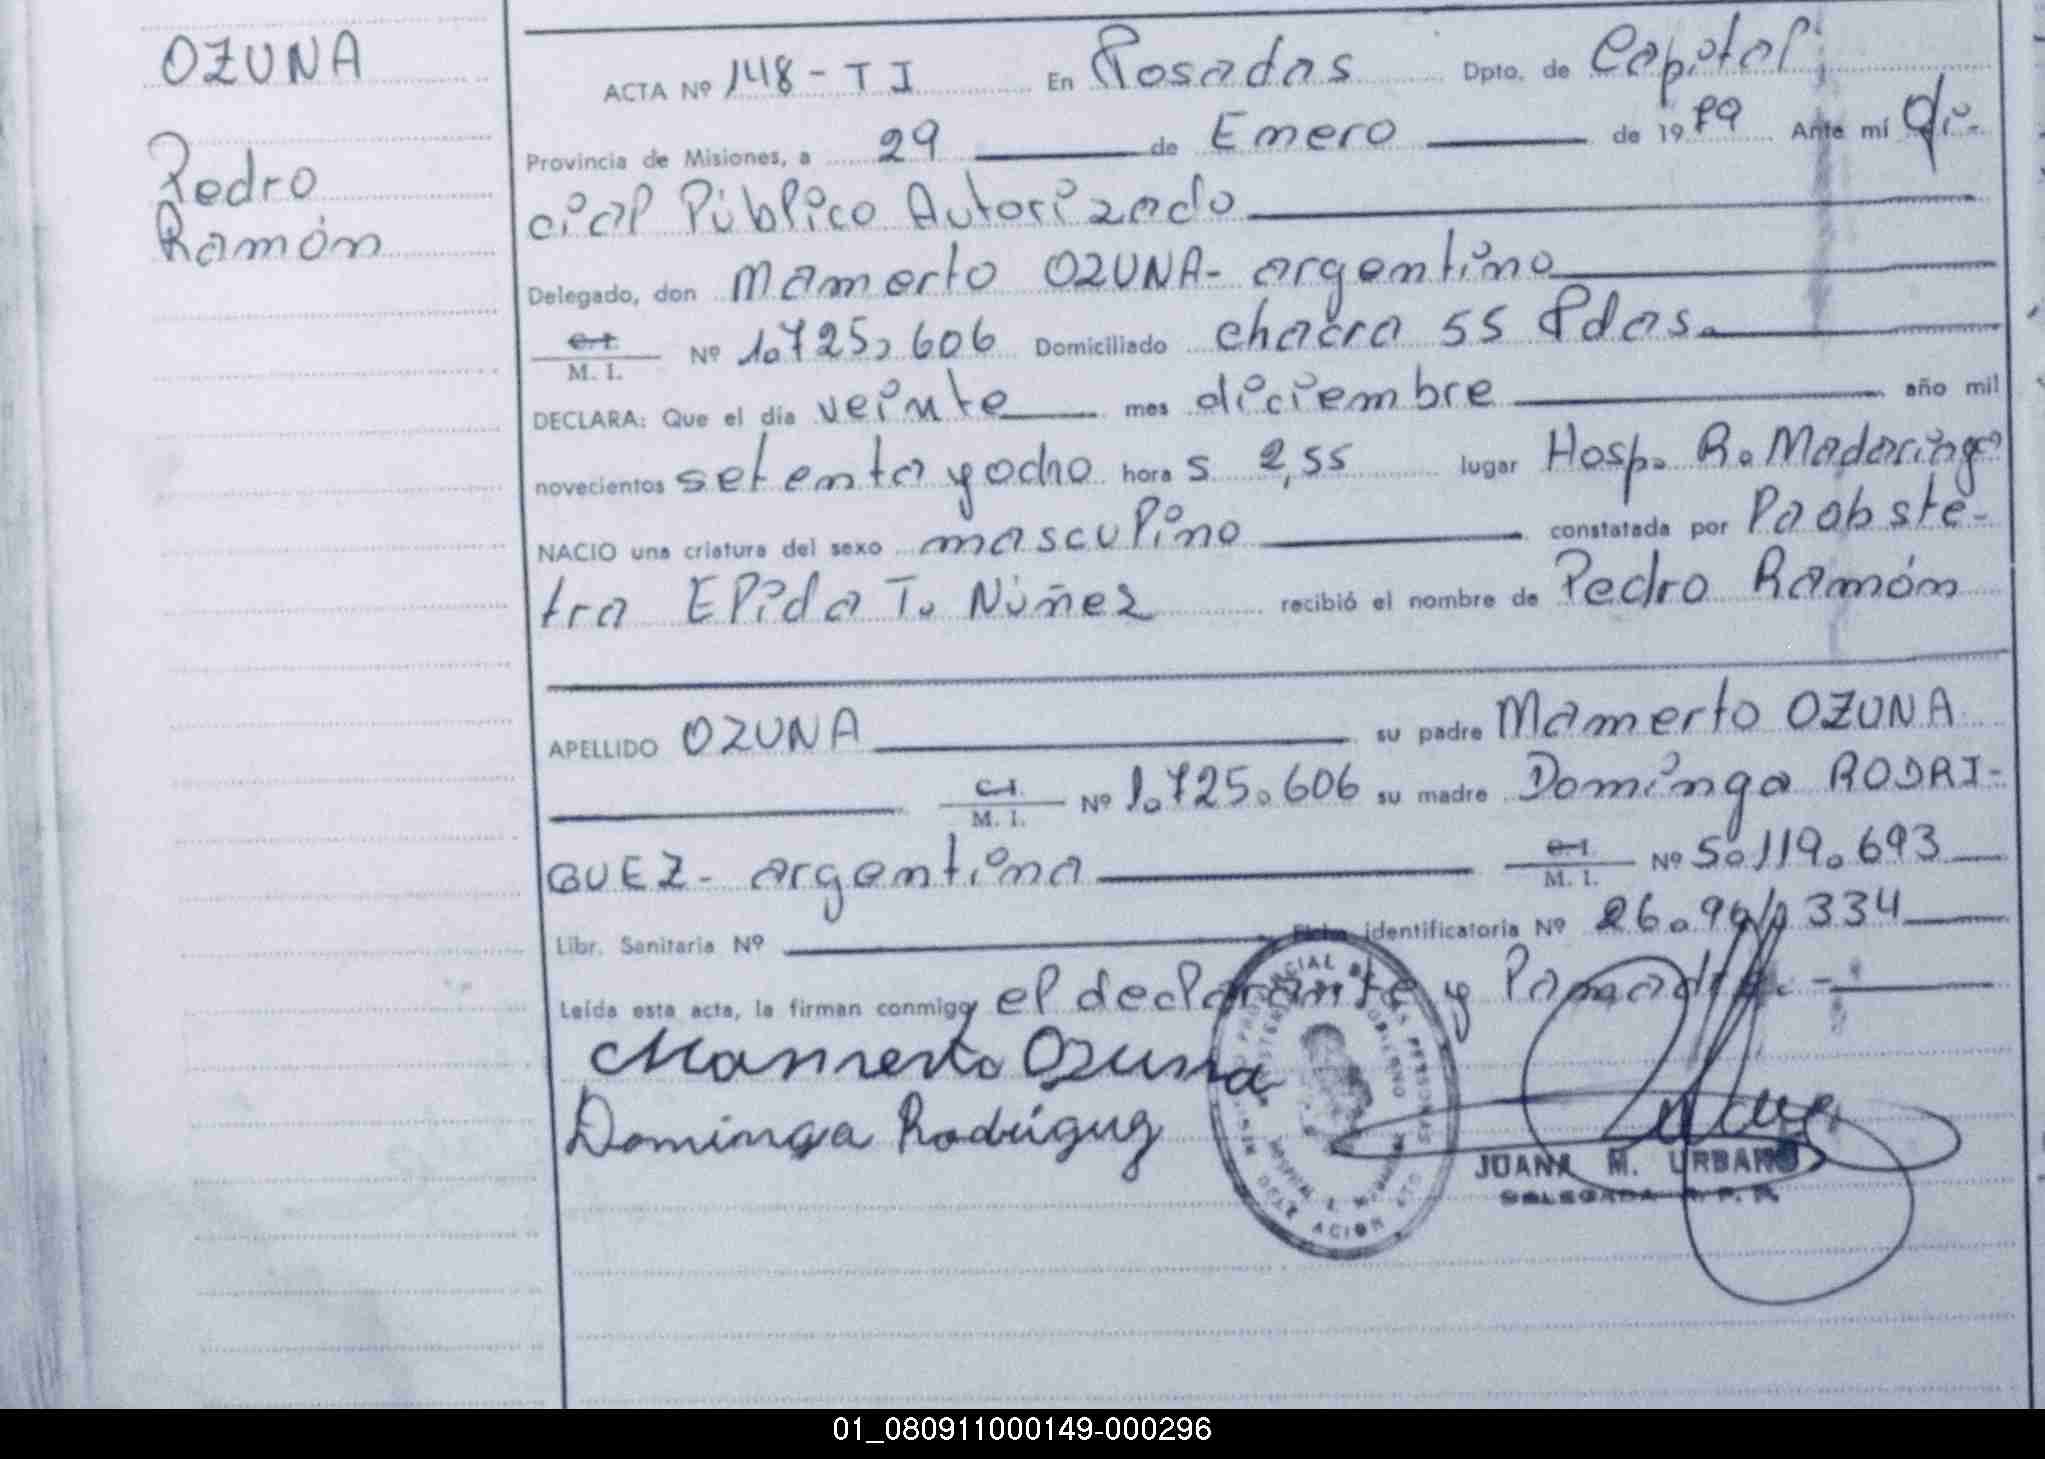 OZUNA
Pedro
Ramón
ACTA Nº 148 - T I En Posadas Dpto. de Capital
Provincia de Misiones, a 29 de Enero de 1979 Ante mí Ofi-
cial Público Autorizado
Delegado, don Mamerto OZUNA - argentino
C.I. M. I. Nº 1.725.606 Domiciliado chacra 55 Pdas.
DECLARA: Que el día veinte mes diciembre año mil
novecientos setenta y ocho hora s 2,55 lugar Hosp. R. Madariaga
NACIO una criatura del sexo masculino constatada por la obste-
tra Elida T. Núñez recibió el nombre de Pedro Ramón
APELLIDO OZUNA su padre Mamerto OZUNA
C.I. M. I. Nº 1.725.606 su madre Dominga RODRI-
GUEZ - argentina C.I. M. I. Nº 5.119.693
Libr. Sanitaria Nº Ficha identificatoria Nº 334
Leída esta acta, la firman conmigo, el declarante y la madre. -
Mamerto Ozuna
Dominga Rodríguez
JUANA M. URBANO
DELEGADA R. P. P.
01_080911000149-000296